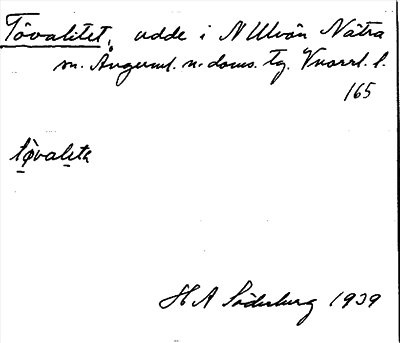 Tövalitet, udde i N Ulvön Nätra
sn. Ångerml. n. doms. tg. Vnorrl. l.
165
tövalita
H A Söderberg 1939